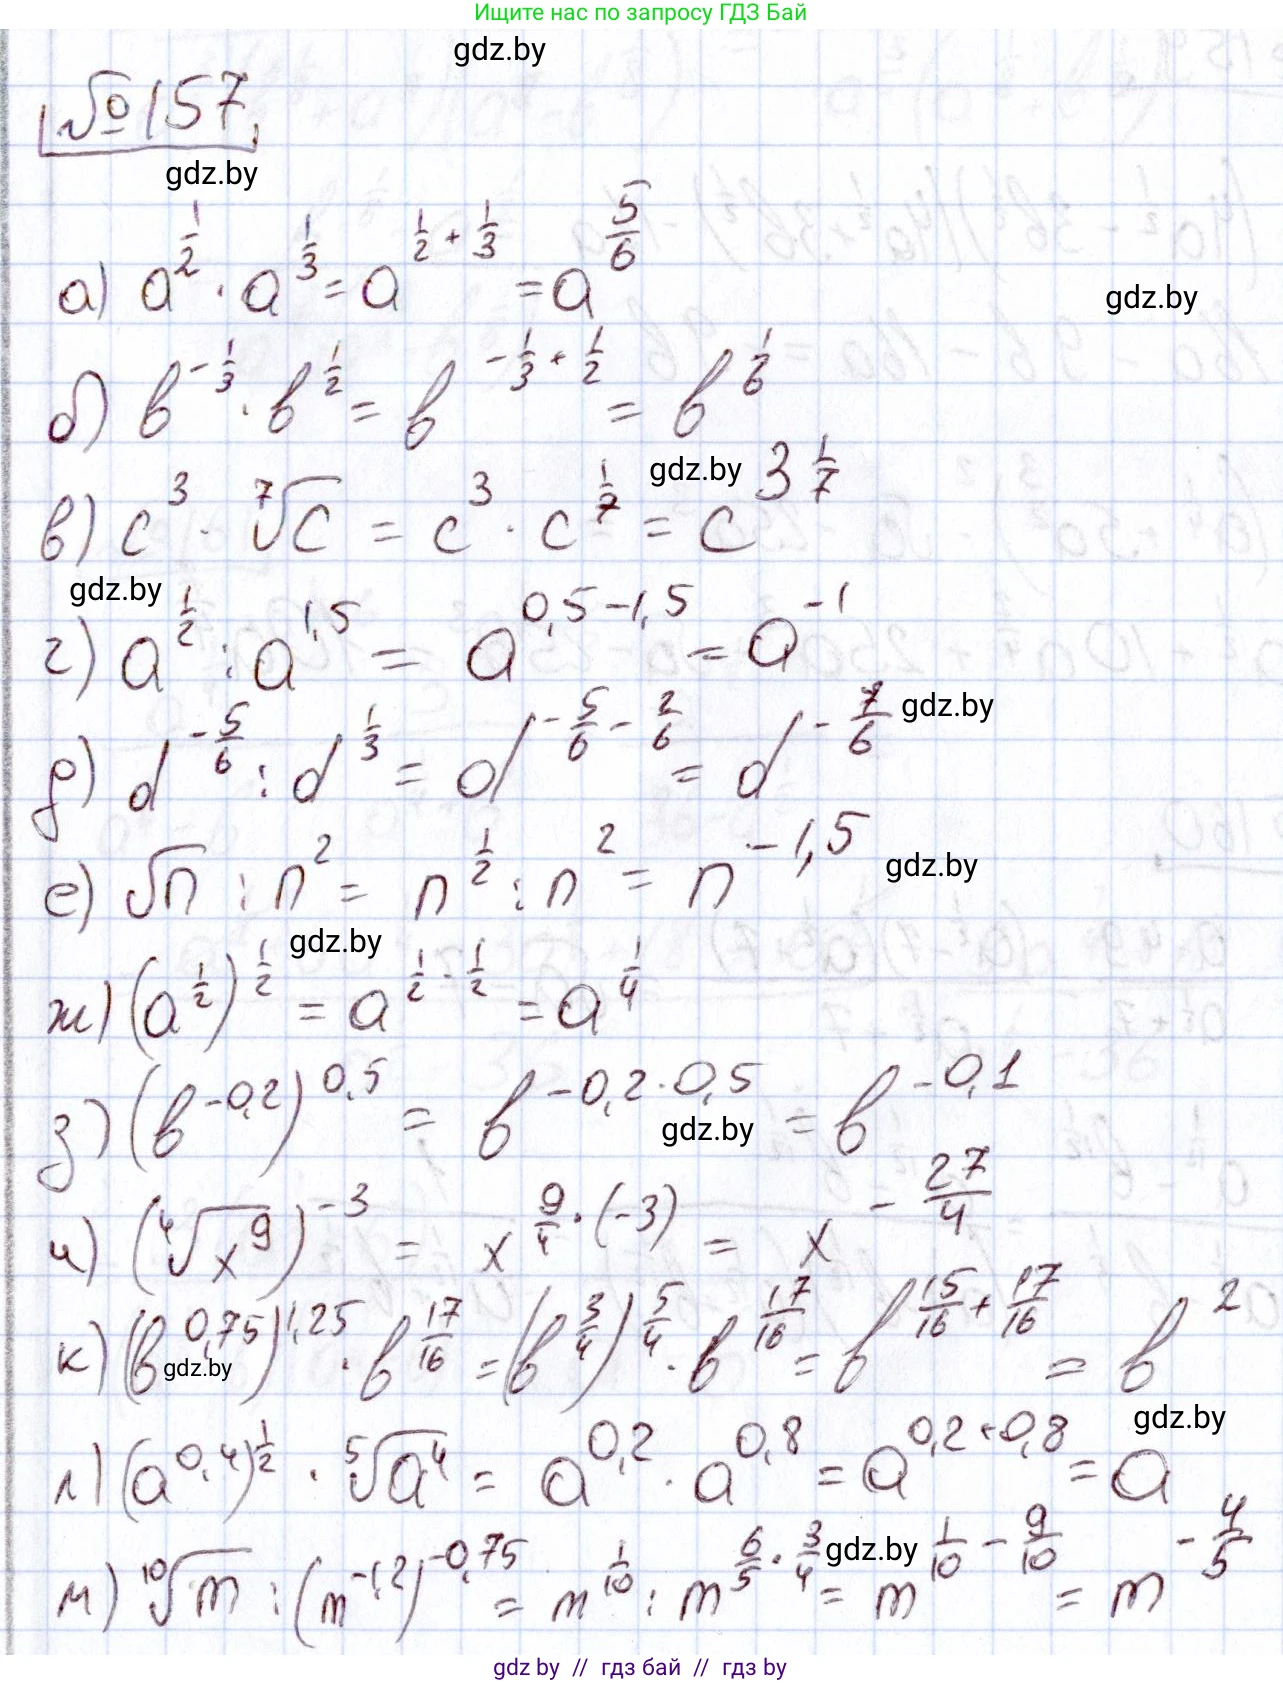 Ищите нас по запросу ГДЗ Бай
gdz.by
№157.
gdz.by
а) a^{1/2} · a^{1/3} = a^{1/2 + 1/3} = a^{5/6}
gdz.by
б) b^{-1/3} · b^{1/2} = b^{-1/3 + 1/2} = b^{1/6}
gdz.by
в) c^3 · \sqrt[7]{c} = c^3 · c^{1/7} = c^{3 1/7}
gdz.by
г) a^{1/2} : a^{1,5} = a^{0,5-1,5} = a^{-1}
gdz.by
д) d^{-5/6} : d^{1/3} = d^{-5/6 - 2/6} = d^{-7/6}
е) \sqrt{n} : n^2 = n^{1/2} : n^2 = n^{-1,5}
gdz.by
gdz.by
ж) (a^{1/2})^{1/2} = a^{1/2 · 1/2} = a^{1/4}
з) (b^{-0,2})^{0,5} = b^{-0,2 · 0,5} = b^{-0,1}
gdz.by
и) (\sqrt[4]{x^9})^{-3} = x^{9/4 · (-3)} = x^{-27/4}
к) (b^{0,75})^{1,25} · b^{17/16} = (b^{3/4})^{5/4} · b^{17/16} = b^{15/16 + 17/16} = b^2
gdz.by
gdz.by
л) (a^{0,4})^{1/2} · \sqrt[5]{a^4} = a^{0,2} · a^{0,8} = a^{0,2+0,8} = a
м) \sqrt[10]{m} : (m^{-1,2})^{-0,75} = m^{1/10} : m^{6/5 · 3/4} = m^{1/10 - 9/10} = m^{-4/5}
gdz.by
gdz by // гдз бай // гдз by